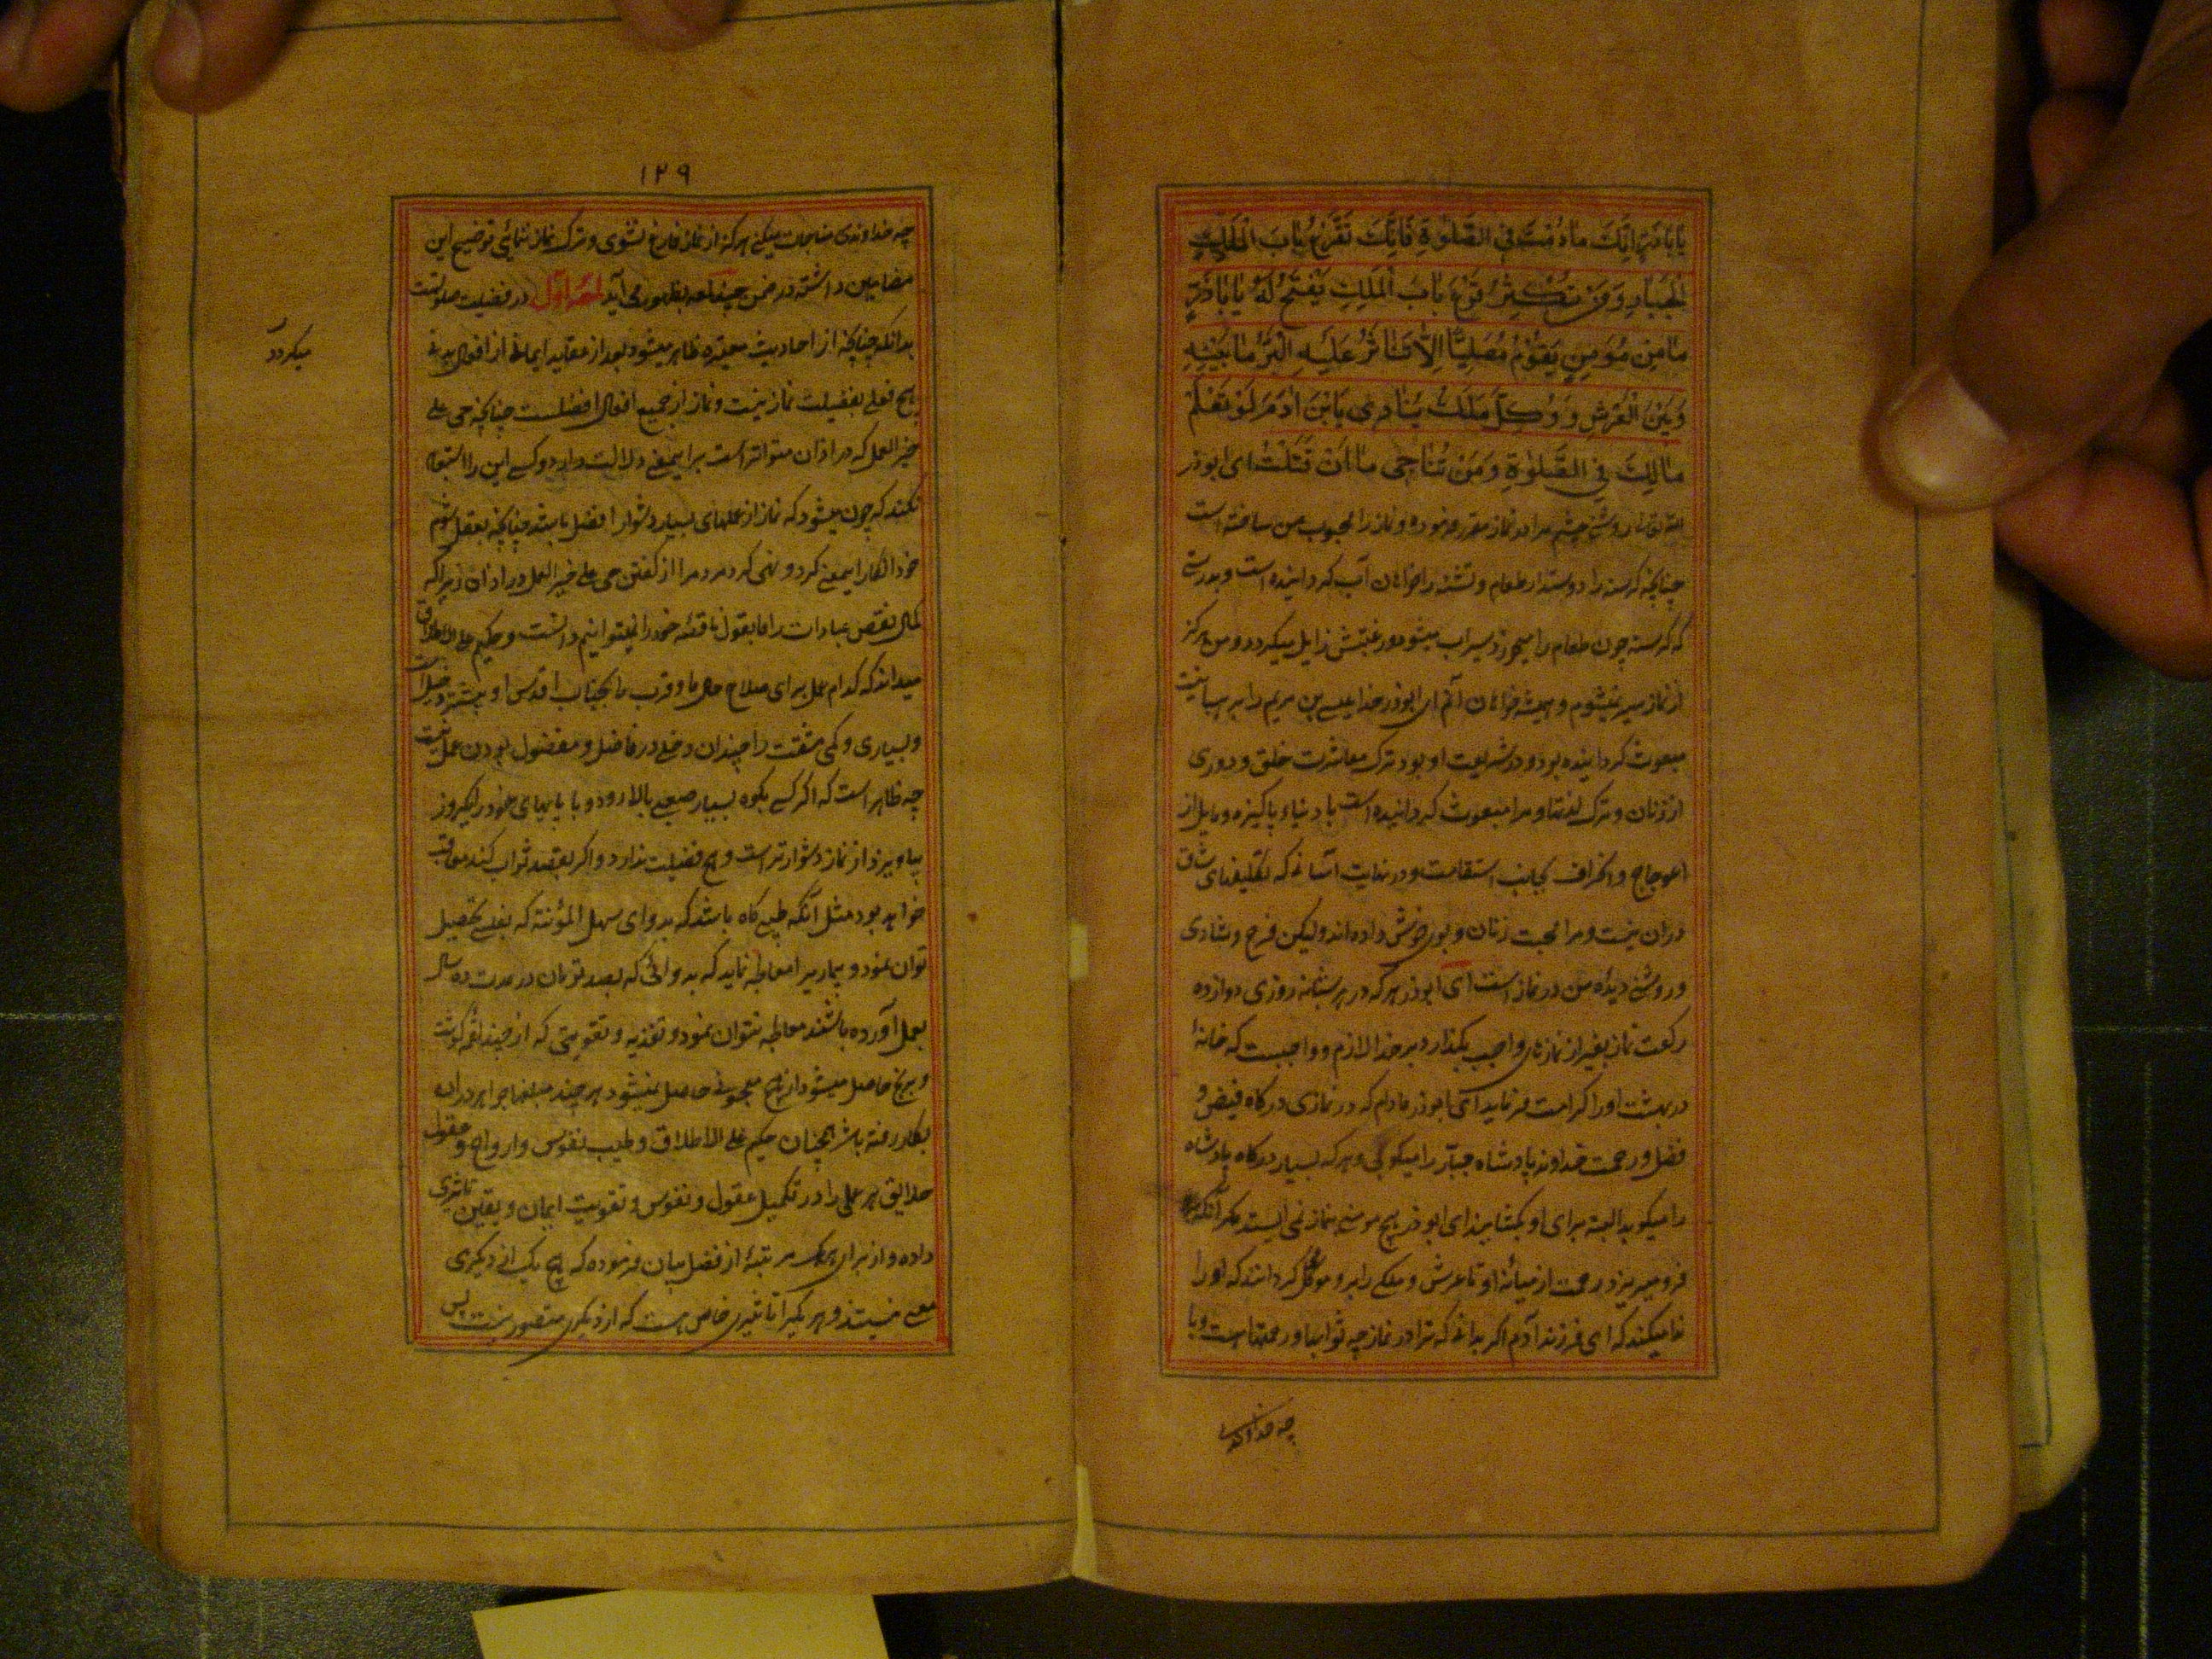 يا باذر انك ما دمت فى الصلوة فانك تقرع باب الملك
الجبار و من يكثر قرع باب الملك يفتح له يا باذر
ما من مؤمن يقوم مصليا الا تناثر عليه البر ما بينه
و بين العرش و وكل ملك ينادى يابن ادم لو تعلم
مالك فى الصلوة و من تناجى ما انفتلت اى ابوذر
روشنى چشم مرا در نماز مقرر فرموده و نماز را محبوب من ساخته است
چنانچه گرسنه را دوستدار طعام و تشنه را خواهان آب گردانیده است و بدرستی
که گرسنه چون طعام را میخورد سیراب میشود و رغبتش زایل میگردد و من هرگز
از نماز سیر نمیشوم و همیشه خواهان آنم ای ابوذر خدا عیسی بن مریم را بر رهبانیت
مبعوث گردانیده بود و در شریعت او بود ترک معاشرت خلق و دوری
از زنان و ترک لذتها و مرا مبعوث گردانیده است با دنیاء پاکیزه و مایل از
اعوجاج و انحراف بجانب استقامت و در نهایت آسانی که تکلیفهای شاق
در ان نیست و مرا محبت زنان و بوی خوش داده اند و لیکن فرح و شادی
و روشنی دیده من در نماز است ای ابوذر هر که در هر شبانه روزی دوازده
رکعت نماز بغیر از نمازهای واجب بگذارد بر خدا لازم و واجبست که خانهٔ
در بهشت او را کرامت فرماید ای ابوذر مادام که در نمازی درگاه فیض و
فضل و رحمت خداوند پادشاه جبار را میکوبی و هر که بسیار درگاه پادشاه
را میکوبد البته برای او بگشایند ای ابوذر هیچ مومنی بنماز نمی ایستد مگر آنکه
فرو میریزد رحمت از میانهٔ او تا عرش و ملکی را برو موکل گردانند که او را
ندا میکند که ای فرزند آدم اگر بدانی که ترا در نماز چه ثوابها و رحمتهاست و با
چه خداوندی
١٢٩
چه خداوندی مناجات میکنی هرگز از نماز فارغ نشوی و ترک نماز ننمائی توضیح این
مضامین در ضمن چند لمعه بظهور می آید لمعه اول در فضیلت صلوتست
بدانکه چنانچه از احادیث معتبره ظاهر میشود بعد از عقاید ایمانی از افعال بدنی
هیچ فعلی بفضیلت نماز نیست و نماز از جمیع افعال افضلست چنانچه حی علی
خیر العمل که در اذان متواتر است بر ایمعنی دلالت دارد و کسی این را استبعاد
نکند که چون میشود که نماز از عملهای بسیار دشوار افضل باشد چنانچه بعقل شوم
خود انکار ایمعنی کرد و نهی کرد مردم را از گفتن حی علی خیر العمل در اذان زیرا که
کمال و نقص عبادات را ما بعقول ناقصه خود نمیتوانیم دانست و حکیم علی الاطلاق
میداند که کدام عمل برای صلاح حال ما و قرب ما بجناب اقدس او بیشتر دخیل است
و بسیاری و کمی مشقت را چندان دخلی در فاضل و مفضول بودن عمل نیست
چه ظاهر است که اگر کسی بکوه بسیار صعبی بالا رود و با پایهای خود را یکروز
بیاویزد از نماز دشوارتر است و هیچ فضیلت ندارد و اگر بقصد ثواب کند معاقب
خواهد بود مثل آنکه طبیب گاه باشد که بدوای سهل المؤنته که بفلسی تحصیل
توان نمود بیماریرا معالجه نماید که بدوائی که بصد تومان در مدت ده سال
بعمل آورده باشند معالجه نتوان نمود و تغذیه و تقویتی که از چند لقمه گوشت
و برنج حاصل میشود از هیچ معجونی حاصل نمیشود هر چند مبلغها جواهر در ان
بکار رفته باشد همچنان حکیم علی الاطلاق و طبیب نفوس و ارواح و عقول
خلایق هر عملی را در تکمیل عقول و نفوس و تقویت ایمان و یقین تاثیری
داده و از برای هر یک مرتبهٔ از فضل بیان فرموده که هیچ یک از دیگری
مغنی نیستند و هر یکیرا تاثیری خاص هست که از دیگری متصور نیست پس
میگردد